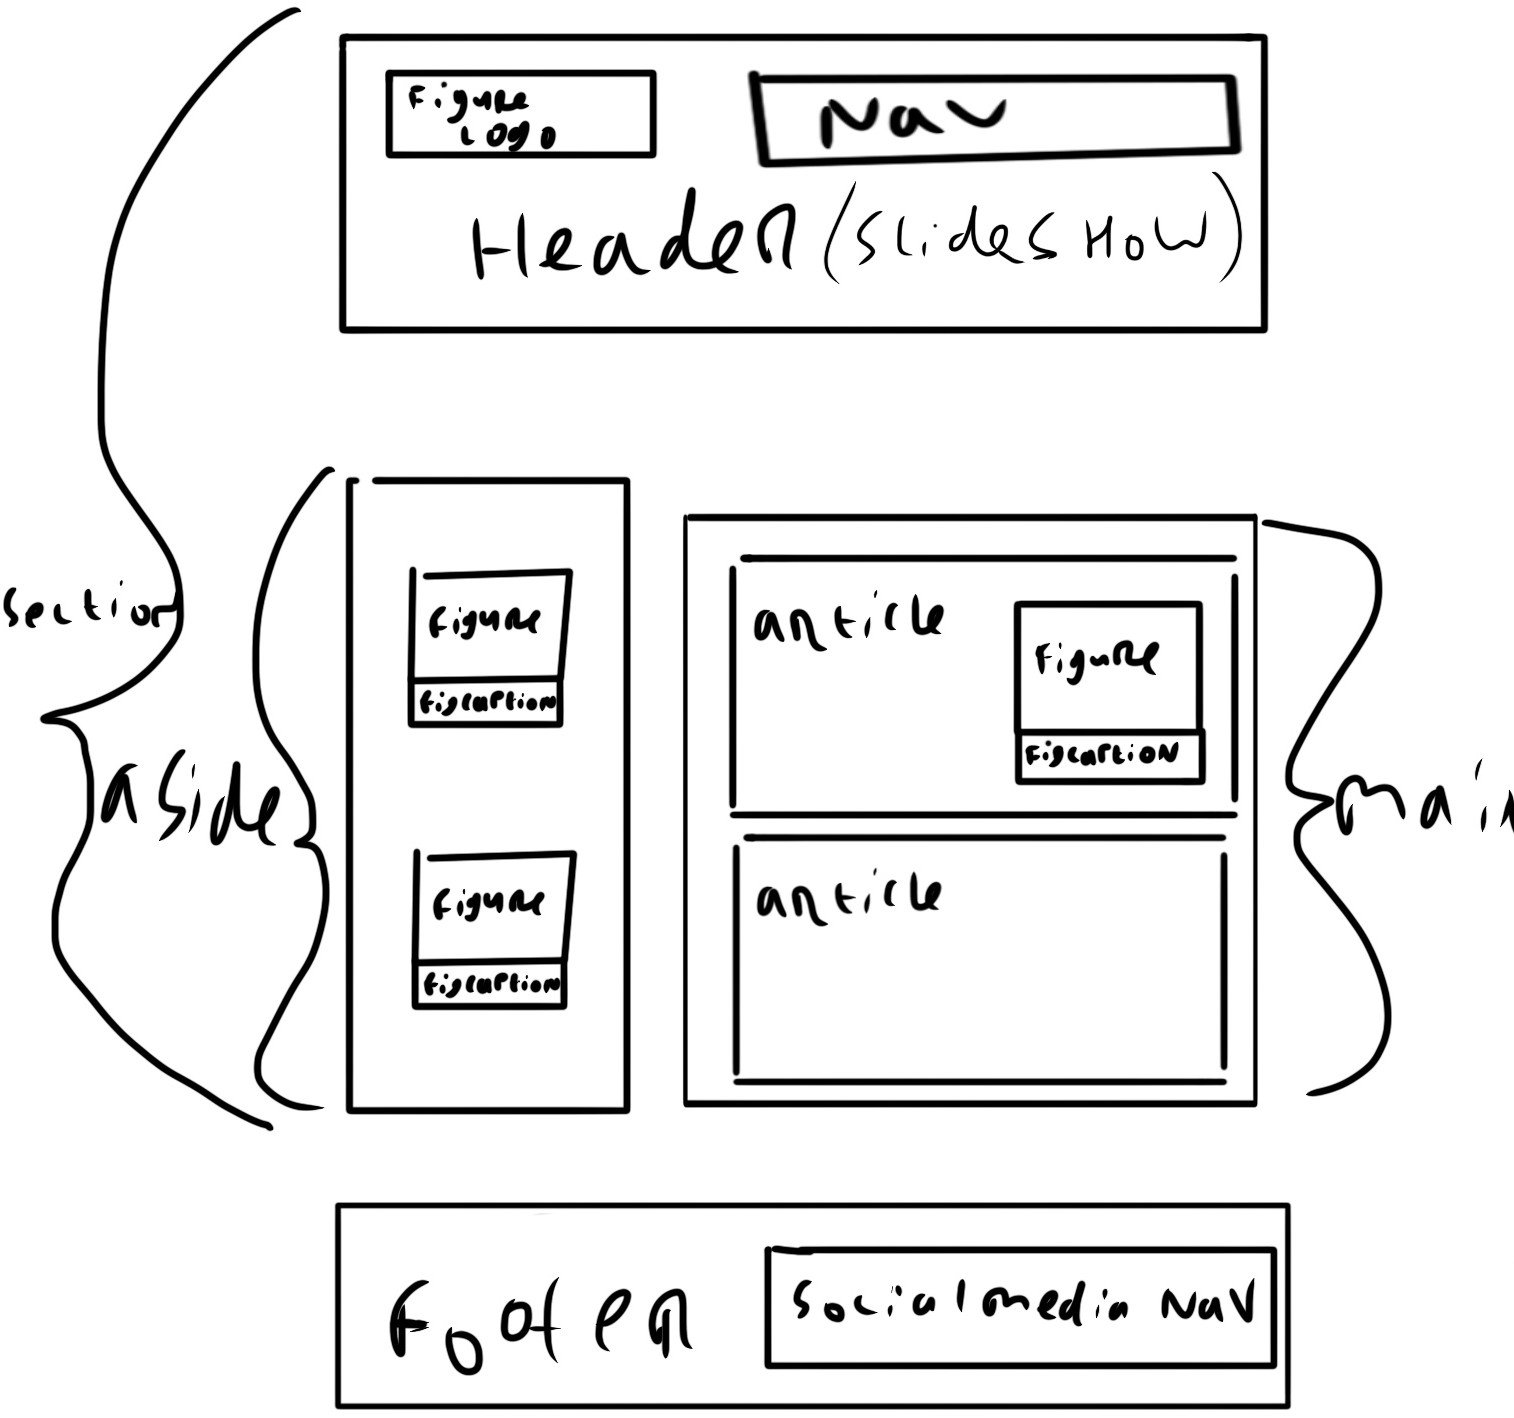 Figure
Logo
Nav
Header (SlideSHoW)
section
aside
Figure
Figcaption
Figure
Figcaption
article
Figure
FigcaptioN
article
main
Footer
Socialmedia NaV